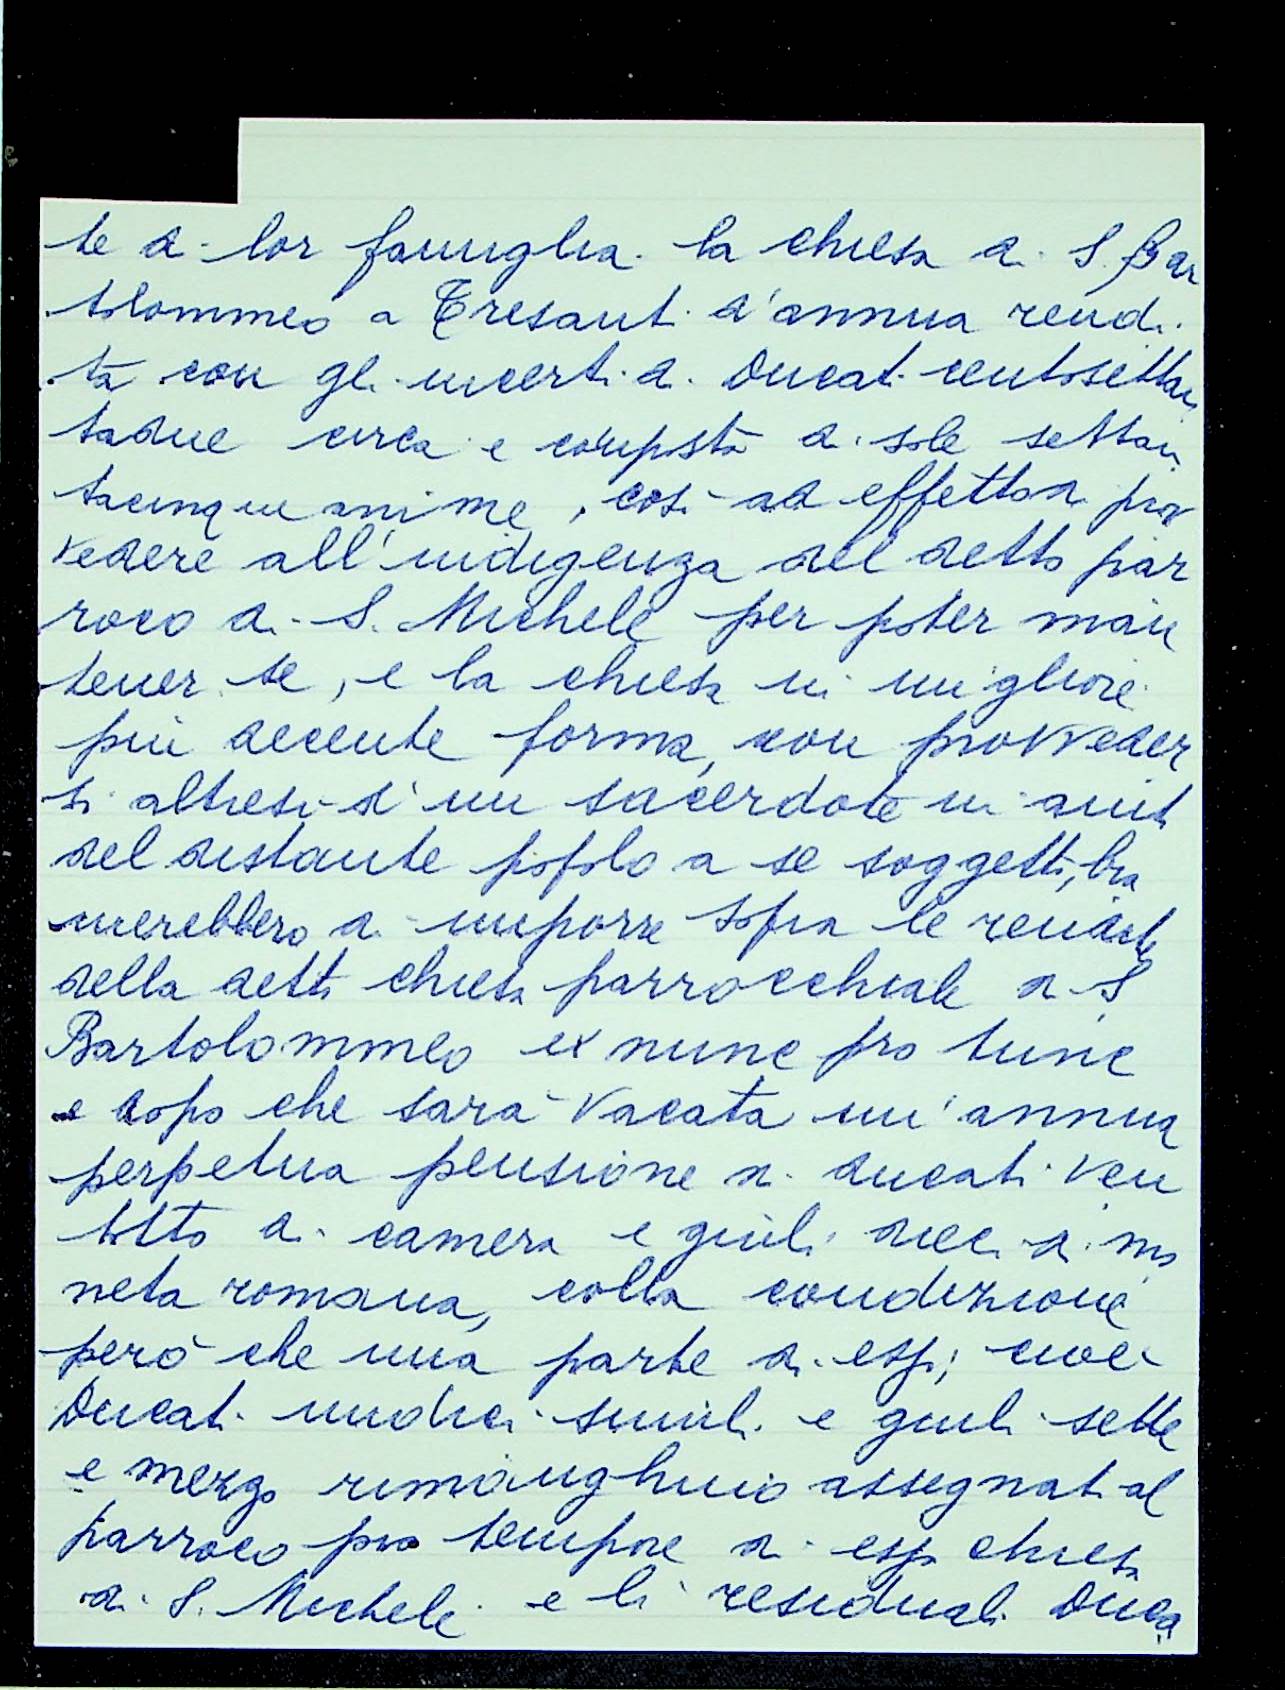 te di lor famiglia. la chiesa di S. Bar
tolommeo a Tresanti d'annua rendi
ta con gl'incerti di Ducati centosettan
tadue circa e composta di sole settan
tacinque anime, così ad effetto di prov
vedere all'indigenza del detto par
roco di S. Michele per poter man
tener se, e la chiesa in migliore
più decente forma, con provveder
si altresì d'un sacerdote in aiuto
del distante popolo a se soggetto, bra
merebbero di imporre sopra le rendite
della detta chiesa parrocchiale di S.
Bartolommeo ex nunc pro tunc
e dopo che sarà vacata un'annua
perpetua pensione di ducati ven
totto di camera e giuli dieci di mo
neta romana, colla condizione
però che una parte di essi, cioè
Ducati undici simili e giuli sette
e mezzo rimanghino assegnati al
parroco pro tempore di essa chiesa
di S. Michele e li residuali Duca